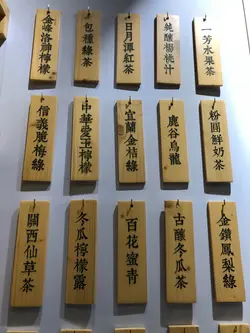 一芳水果茶
純釀楊桃汁
日月潭紅茶
包種綠茶
金峰洛神檸檬
粉圓鮮奶茶
鹿谷烏龍
宜蘭金桔綠
中華愛玉檸檬
信義脆梅綠
金鑽鳳梨綠
古釀冬瓜茶
百花蜜青
冬瓜檸檬露
關西仙草茶